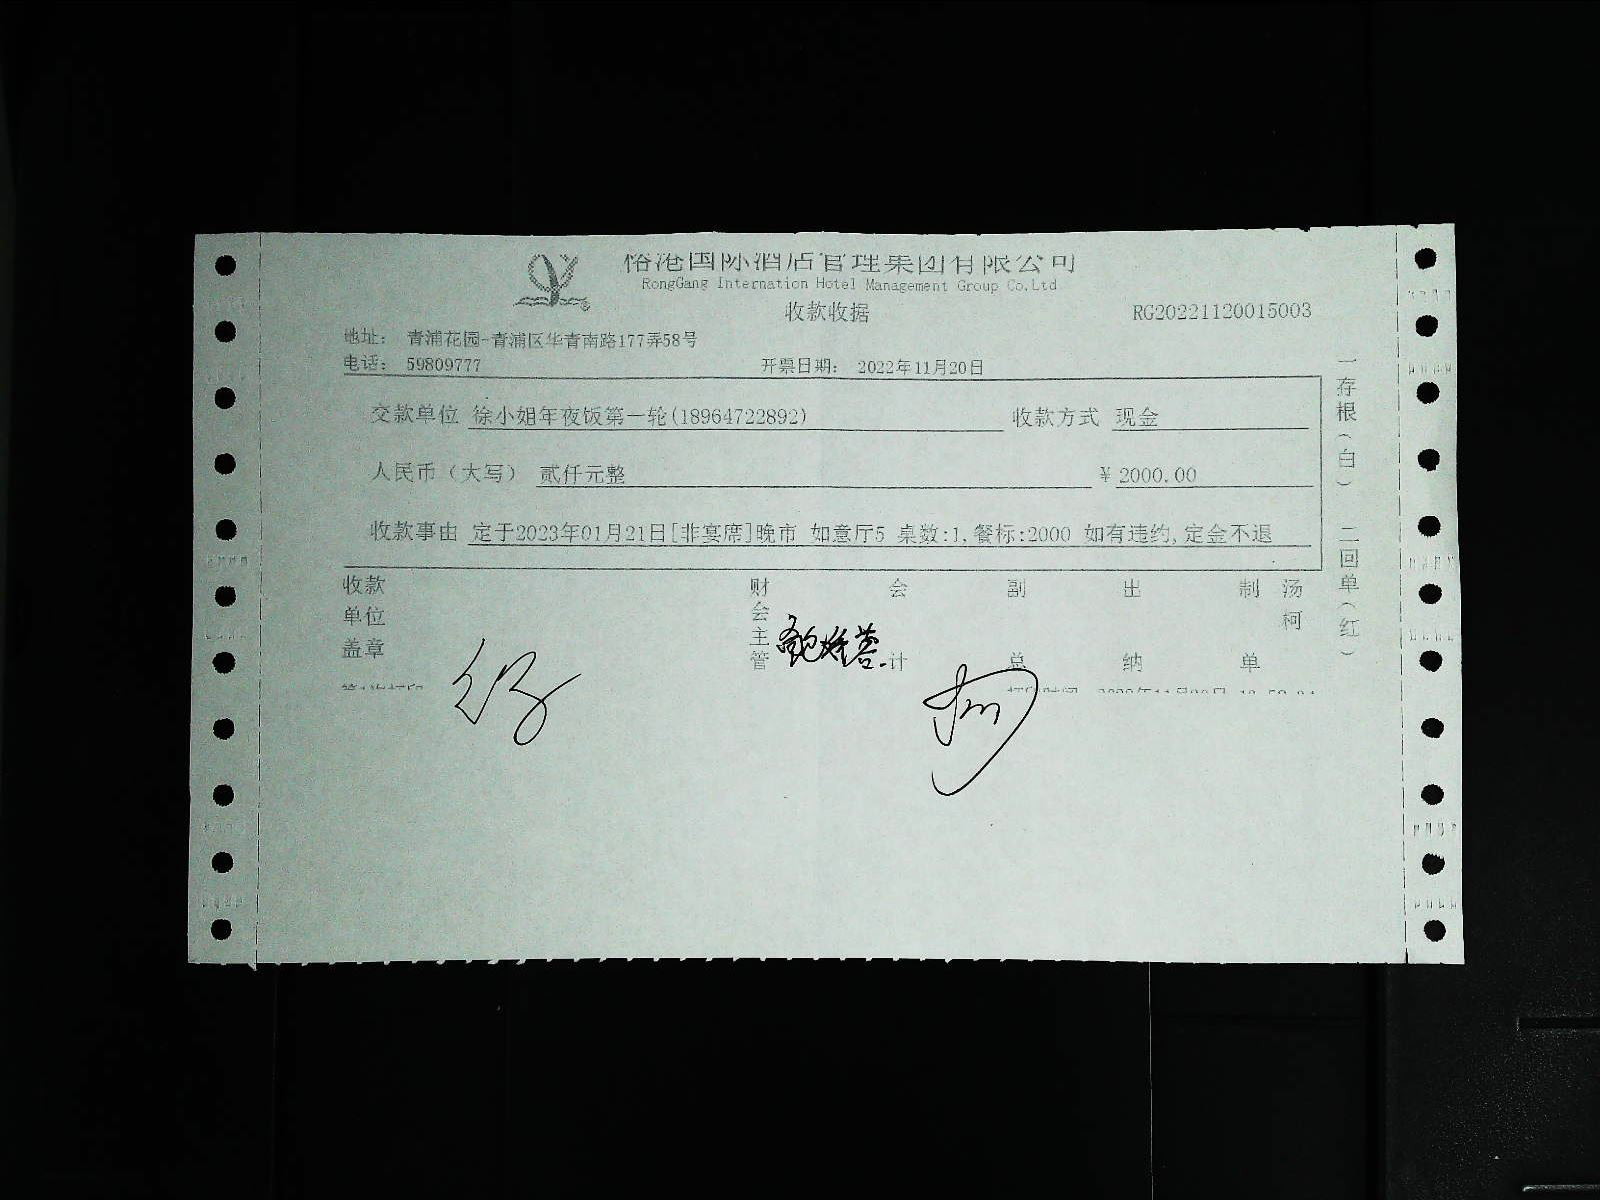 国际酒店管理集团有限公司
RongGang Internation Hotel Management Group Co.Ltd
收款收据
RG20221120015003
地址： 青浦花园-青浦区华青南路177弄58号
电话： 59809777 开票日期： 2022年11月20日
交款单位 徐小姐年夜饭第一轮(18964722892) 收款方式 现金
人民币（大写） 贰仟元整 ¥ 2000.00
收款事由 定于2023年01月21日[非宴席]晚市 如意厅5 桌数:1,餐标:2000 如有违约,定金不退
收款单位盖章 财会主管 会计 副总 出纳 制单 汤柯
一存根（白） 二回单（红）